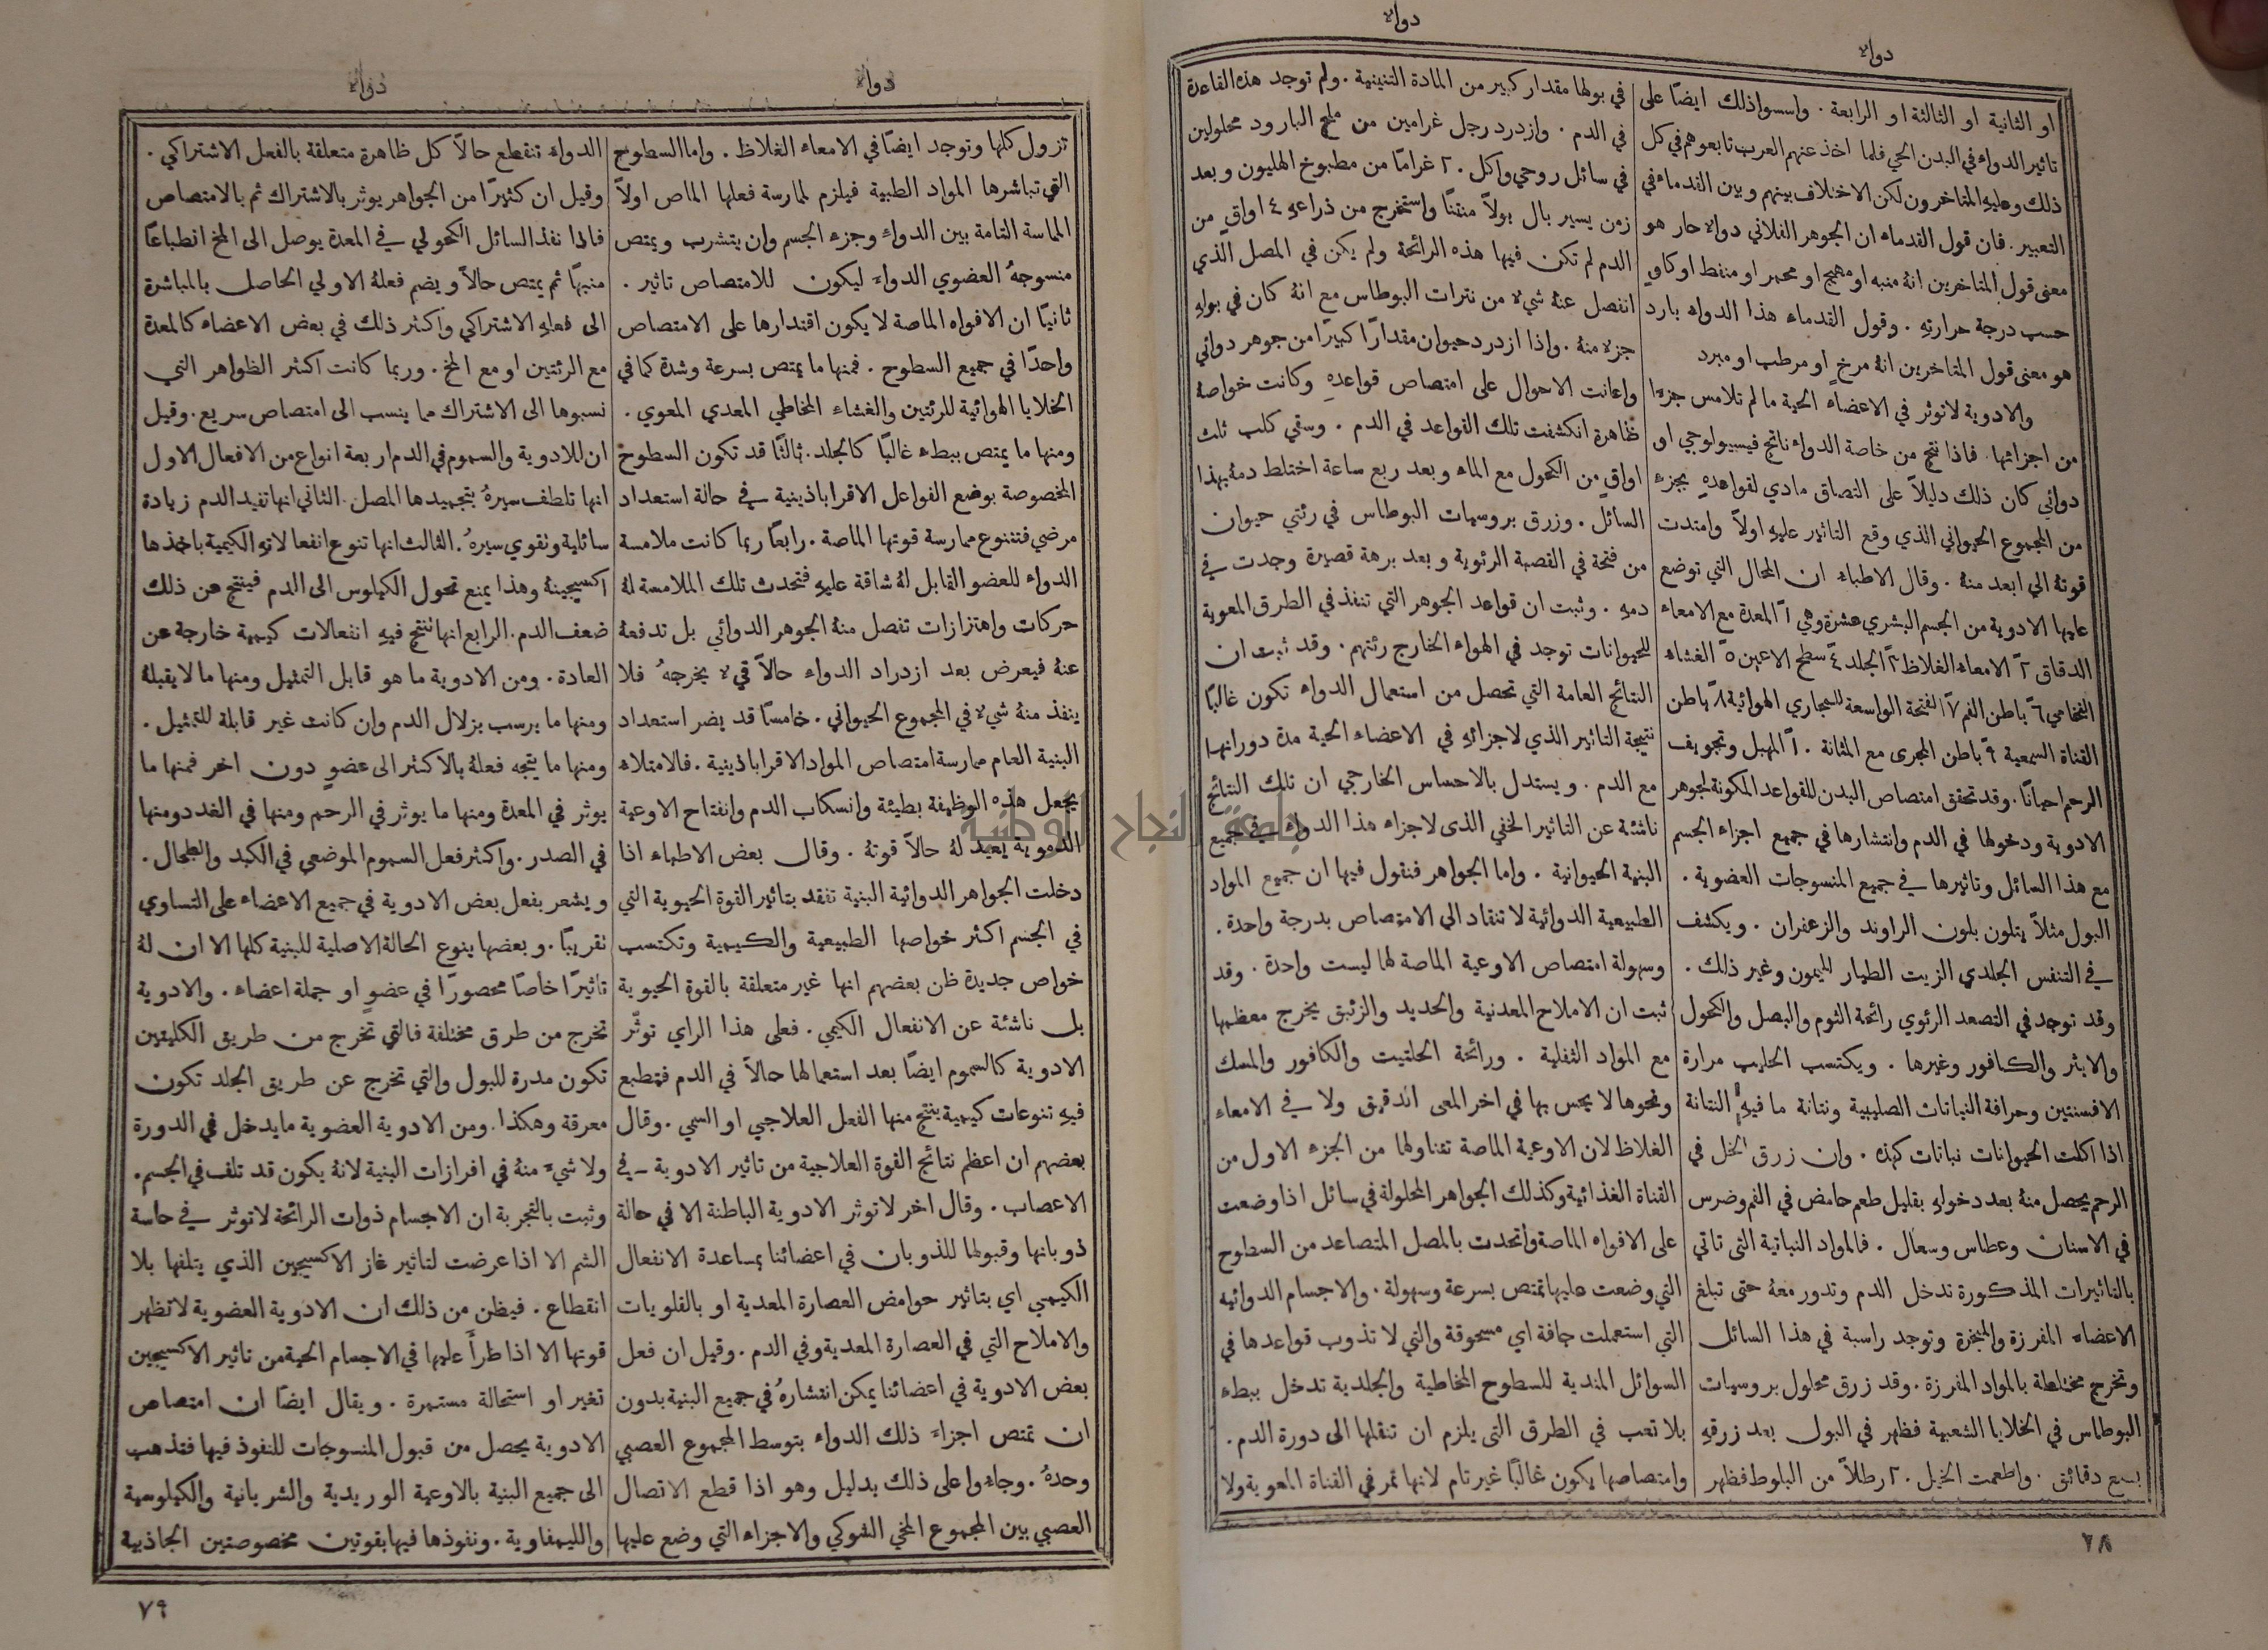 دواء
دواء
او الثانية او الثالثة او الرابعة . واسسوا ذلك ايضًا على
تاثير الدواء في البدن الحي فلما اخذ عنهم العرب تابعوهم في كل
ذلك وعليهِ المتاخرون لكن الاختلاف بينهم وبين القدماء في
التعبير . فان قول القدماء ان الجوهر الفلاني دوالا حار هو
معنى قول المتاخرين انهُ منبه او مهيج او محمر او منفط او كاوٍ
حسب درجة حرارتهِ . وقول القدماء هذا الدواء بارد
هو معنى قول المتاخرين انهُ مرخٍ او مرطب او مبرد
والادوية لا توثر في الاعضاء الحية ما لم تلامس جزءًا
من اجزائها . فاذا نتج من خاصة الدواء ناتج فيسيولوجي او
دوائي كان ذلك دليلاً على التصاق مادي لقواعدهِ بجزء
من المجموع الحيواني الذي وقع التاثير عليهِ اولاً وامتدت
قوتهُ الى ابعد منهُ . وقال الاطباء ان المحال التي توضع
عليها الادوية من الجسم البشري عشرة وهي ١ً المعدة مع الامعاء
الدقاق ٢ً الامعاء الغلاظ ٣ً الجلد ٤ً سطح الاعين ٥ً الغشاء
النخامي ٦ً باطن الفم ٧ً الفتحة الواسعة للمجاري الهوائية ٨ً باطن
القناة السمعية ٩ً باطن المجرى مع المثانة . ١٠ً المهبل وتجويف
الرحم احيانًا . وقد تحقق امتصاص البدن للقواعد المكونة لجوهر
الادوية ودخولها في الدم وانتشارها في جميع اجزاء الجسم
مع هذا السائل وتاثيرها في جميع المنسوجات العضوية .
البول مثلاً يتلون بلون الراوند والزعفران . ويكشف
في التنفس الجلدي الزيت الطيار لليمون وغير ذلك .
وقد توجد في التصعد الرئوي رائحة الثوم والبصل والكحول
والايثر والكافور وغيرها . ويكتسب الحليب مرارة
الافسنتين وحرافة النباتات الصليبية ونتانة ما فيهِ النتانة
اذا اكلت الحيوانات نباتات كهذه . وان زرق الخل في
الرحم يحصل منهُ بعد دخولهِ بقليل طعم حامض في الفم وضرس
في الاسنان وعطاس وسعال . فالمواد النباتية التي تاتي
بالتاثيرات المذكورة تدخل الدم وتدور معهُ حتى تبلغ
الاعضاء المفرزة والمبخرة وتوجد راسبة في هذا السائل
وتخرج مختلطة بالمواد المفرزة . وقد زرق محلول بروسيات
البوطاس في الخلايا الشعبية فظهر في البول بعد زرقهِ
بسبع دقائق . واطعمت الخيل ٢٠ رطلاً من البلوط فظهر
في بولها مقدار كبير من المادة التنينية . ولم توجد هذه القاعدة
في الدم . وازدرد رجل غرامين من ملح البارود محلولين
في سائل روحي واكل ٢٠ غرامًا من مطبوخ الهليون وبعد
زمن يسير بال بولاً منتنًا واستخرج من ذراعهِ ٤ اواقٍ من
الدم لم تكن فيها هذه الرائحة ولم يكن في المصل الذي
انفصل عنهُ شيء من نترات البوطاس مع انهُ كان في بولهِ
جزء منهُ . واذا ازدرد حيوان مقدارًا كبيرًا من جوهر دوائي
واعانت الاحوال على امتصاص قواعدهِ وكانت خواصهُ
ظاهرة انكشفت تلك القواعد في الدم . وسقي كلب ثلث
اواقٍ من الكحول مع الماء وبعد ربع ساعة اختلط دمهُ بهذا
السائل . وزرق بروسيات البوطاس في رئتي حيوان
من فتحة في القصبة الرئوية وبعد برهة قصيرة وجدت في
دمهِ . وثبت ان قواعد الجوهر التي تنفذ في الطرق المعوية
للحيوانات توجد في الهواء الخارج رئتهم . وقد ثبت ان
النتائج العامة التي تحصل من استعمال الدواء تكون غالبًا
نتيجة التاثير الذي لاجزائهِ في الاعضاء الحية مدة دورانها
مع الدم . ويستدل بالاحساس الخارجي ان تلك النتائج
ناشئة عن التاثير الخفي الذى لاجزاء هذا الدواء في جميع
البنية الحيوانية . واما الجواهر فنقول فيها ان جميع المواد
الطبيعية الدوائية لا تنقاد الى الامتصاص بدرجة واحدة .
وسهولة امتصاص الاوعية الماصة لها ليست واحدة . وقد
ثبت ان الاملاح المعدنية والحديد والزئبق يخرج معظمها
مع المواد الثفلية . ورائحة الحلتيت والكافور والمسك
ونحوها لا يحس بها في اخر المعى الدقيق ولا في الامعاء
الغلاظ لان الاوعية الماصة تتناولها من الجزء الاول من
القناة الغذائية وكذلك الجواهر المحلولة في سائل اذا وضعت
على الافواه الماصة واتحدت بالمصل المتصاعد من السطوح
التي وضعت عليها تمتص بسرعة وسهولة . والاجسام الدوائية
التي استعملت جافة اي مسحوقة والتي لا تذوب قواعدها في
السوائل المندية للسطوح المخاطية والجلدية تدخل ببطء
بلا تعب في الطرق التي يلزم ان تنقلها الى دورة الدم .
وامتصاصها يكون غالبًا غير تام لانها تمر في القناة المعوية ولا
٧٨
دواء
دواء
تزول كلها وتوجد ايضًا في الامعاء الغلاظ . واما السطوح
التي تباشرها المواد الطبية فيلزم لممارسة فعلها الماص اولاً
المماسة التامة بين الدواء وجزء الجسم وان يتشرب ويمتص
منسوجهُ العضوي الدواء ليكون للامتصاص تاثير .
ثانيًا ان الافواه الماصة لا يكون اقتدارها على الامتصاص
واحدًا في جميع السطوح . فمنها ما يمتص بسرعة وشدة كما في
الخلايا الهوائية للرئتين والغشاء المخاطي المعدي المعوي .
ومنها ما يمتص ببطء غالبًا كالجلد . ثالثًا قد تكون السطوح
المخصوصة بوضع الفواعل الاقراباذينية في حالة استعداد
مرضي فتتنوع ممارسة قوتها الماصة . رابعًا ربما كانت ملامسة
الدواء للعضو القابل لهُ شاقة عليهِ فتحدث تلك الملامسة لهُ
حركات واهتزازات تفصل منهُ الجوهر الدوائي بل تدفعهُ
عنهُ فيعرض بعد ازدراد الدواء حالاً قيء يخرجهُ فلا
ينفذ منهُ شيء في المجموع الحيواني . خامسًا قد يضر استعداد
البنية العام ممارسة امتصاص المواد الاقراباذينية . فالامتلاء
يجعل هذه الوظيفة بطيئة وانسكاب الدم وانفتاح الاوعية
الدموية يعيد لهُ حالاً قوتهُ . وقال بعض الاطباء اذا
دخلت الجواهر الدوائية البنية تفقد بتاثير القوة الحيوية التي
في الجسم اكثر خواصها الطبيعية والكيمية وتكتسب
خواص جديدة ظن بعضهم انها غير متعلقة بالقوة الحيوية
بل ناشئة عن الانفعال الكيمي . فعلى هذا الراي توثّر
الادوية كالسموم ايضًا بعد استعمالها حالاً في الدم فتطبع
فيهِ تنوعات كيمية ينتج منها الفعل العلاجي او السمي . وقال
بعضهم ان اعظم نتائج القوة العلاجية من تاثير الادوية في
الاعصاب . وقال اخر لا توثر الادوية الباطنة الا في حالة
ذوبانها وقبولها للذوبان في اعضائنا بمساعدة الانفعال
الكيمي اي بتاثير حوامض العصارة المعدية او بالقلويات
والاملاح التي في العصارة المعدية وفي الدم . وقيل ان فعل
بعض الادوية في اعضائنا يمكن انتشارهُ في جميع البنية بدون
ان تمتص اجزاء ذلك الدواء بتوسط المجموع العصبي
وحدهُ . وجاءوا على ذلك بدليل وهو اذا قطع الاتصال
العصبي بين المجموع المخي الشوكي والاجزاء التي وضع عليها
الدواء تنقطع حالاً كل ظاهرة متعلقة بالفعل الاشتراكي .
وقيل ان كثيرًا من الجواهر يوثر بالاشتراك ثم بالامتصاص
فاذا نفذ السائل الكحولي في المعدة يوصل الى المخ انطباعًا
منبهًا ثم يمتص حالاً ويضم فعلهُ الاولي الحاصل بالمباشرة
الى فعلهِ الاشتراكي واكثر ذلك في بعض الاعضاء كالمعدة
مع الرئتين او مع المخ . وربما كانت اكثر الظواهر التي
نسبوها الى الاشتراك مما ينسب الى امتصاص سريع . وقيل
ان للادوية والسموم في الدم اربعة انواع من الافعال الاول
انها تلطف سيرهُ بتجميدها المصل . الثاني انها تفيد الدم زيادة
سائلية وتقوي سيرهُ . الثالث انها تنوع انفعالاتهِ الكيمية باخذها
اكسيجينهُ وهذا يمنع تحول الكيلوس الى الدم فينتج عن ذلك
ضعف الدم . الرابع انها تنتج فيهِ انفعالات كيمية خارجة عن
العادة . ومن الادوية ما هو قابل التمثيل ومنها ما لا يقبلهُ
ومنها ما يرسب بزلال الدم وان كانت غير قابلة للتمثيل .
ومنها ما يتجه فعلهُ بالاكثر الى عضوٍ دون اخر فمنها ما
يوثر في المعدة ومنها ما يوثر في الرحم ومنها في الغدد ومنها
في الصدر . واكثر فعل السموم الموضعي في الكبد والطحال .
ويشعر بفعل بعض الادوية في جميع الاعضاء على التساوي
تقريبًا . وبعضها ينوع الحالة الاصلية للبنية كلها الا ان لهُ
تاثيرًا خاصًا محصورًا في عضوٍ او جملة اعضاء . والادوية
تخرج من طرق مختلفة فالتي تخرج من طريق الكليتين
تكون مدرة للبول والتي تخرج عن طريق الجلد تكون
معرقة وهكذا . ومن الادوية العضوية ما يدخل في الدورة
ولا شيء منهُ في افرازات البنية لانهُ يكون قد تلف في الجسم .
وثبت بالتجربة ان الاجسام ذوات الرائحة لا توثر في حاسة
الشم الا اذا عرضت لتاثير غاز الاكسيجين الذي يتلفها بلا
انقطاع . فيظن من ذلك ان الادوية العضوية لا تظهر
قوتها الا اذا طرأ عليها في الاجسام الحية من تاثير الاكسيجين
تغير او استحالة مستمرة . ويقال ايضًا ان امتصاص
الادوية يحصل من قبول المنسوجات للنفوذ فيها فتذهب
الى جميع البنية بالاوعية الوريدية والشريانية والكيلوسية
والليمفاوية . ونفوذها فيها بقوتين مخصوصتين الجاذبية
٧٩
جامعة النجاح الوطنية